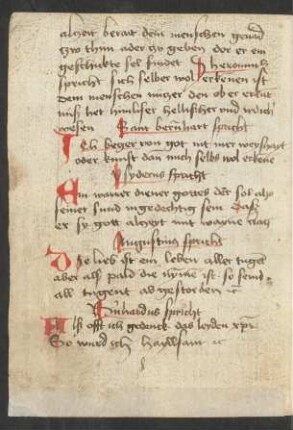 alczeit berait dem menschen genad
zco thun ader zo geben dor er ein
geschickte sel findet Jheronimus
spricht sich selber wol erkenen ist
dem menschen nuczer den ob er erkent
all himliser hellischer und irdisch
wesen Sant bernhart spricht
Ich beger von got nit mer weyshait
oder kunst dan mich selbs wol erkene
ysyderus spricht
Ain warer diener gottes der sol alzo
seiner sund ingedechtig sein daß
er sy gott alczeyt mit wayne clag
Augustinus spricht
Die lieb ist ein leben aller tuget
aber als pald die nyme ist so seind
all tugent abgestorben etc
Bernhardus spricht
Als offt ich gedenck das leiden xpi
So wurd ich haylsam etc